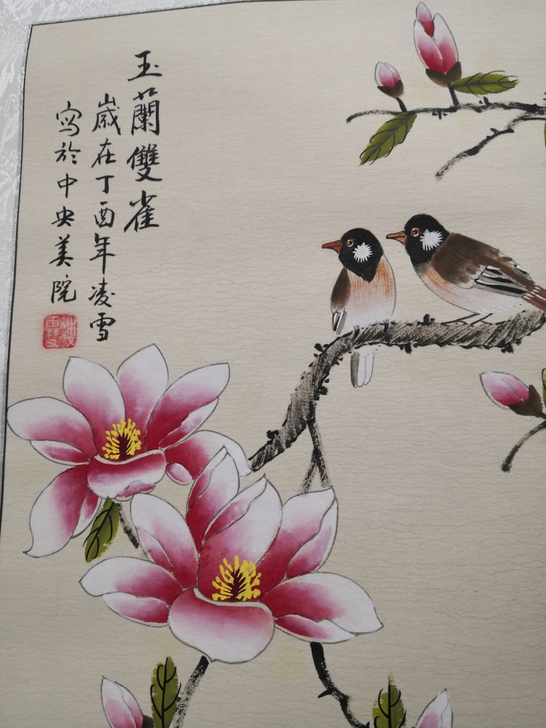 玉蘭雙雀
歲在丁酉年凌雪
寫於中央美院